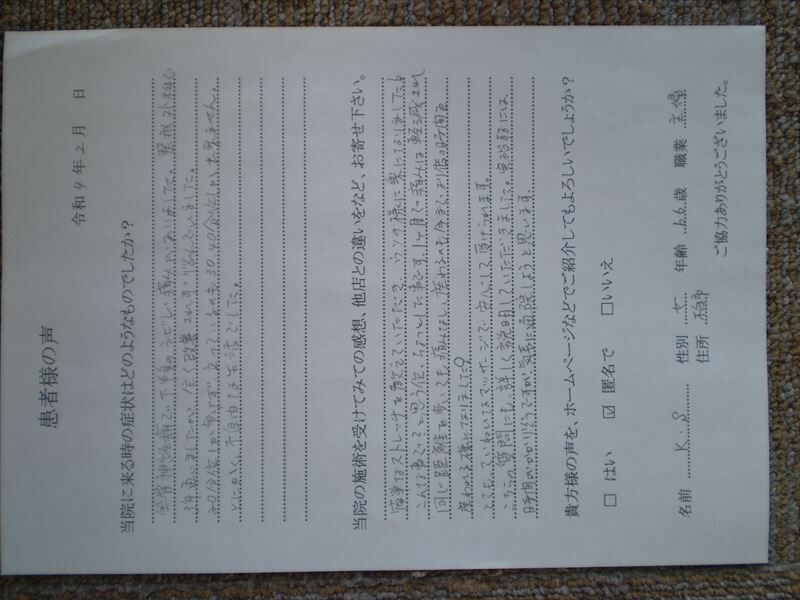 患者様の声
令和4年2月 日
当院に来る時の症状はどのようなものでしたか?
坐骨神経痛で下半身のシビレ、痛みがありました。整形外科に
3年通いましたが、全く改善されず、悩んでいました。
20分位しか歩けず、立っているのも30、40分位しか出来ません。
とにかく、不自由な生活でした。
当院の施術を受けてみての感想、他店との違いなど、お寄せ下さい。
簡単なストレッチを教えていただき、ウソの様に楽になりました!
こんな事で?と思う位、ちょっとした事です。1ヶ月で痛みは軽減され
同じ距離を歩いても、痛みなし、座わるのも
座われる様になりました♡
とても、ていねいなマッサージで安心して受けられます。
こちらの質問にも、詳しく説明していただきました。完治には、
時間がかかりそうですが、気長に通院しようと思います。
貴方様の声を、ホームページなどでご紹介してもよろしいでしょうか?
□ はい ☑ 匿名で □いいえ
名前 K.S 性別 女 年齢 66歳 職業 主婦
住所
ご協力ありがとうございました。